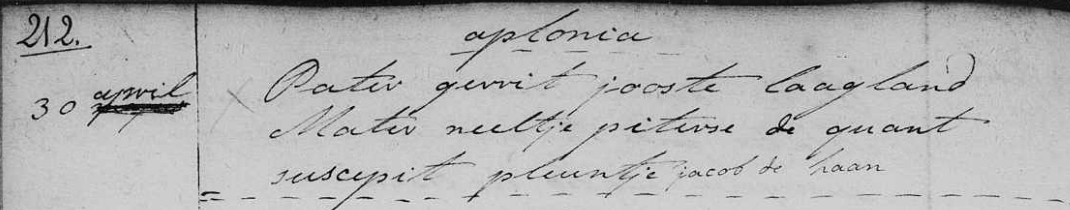 212.
aplonia
30 april
Pater gerrit jooste laagland
Mater neeltje piterse de quant
suscepit pleuntje jacob de haan